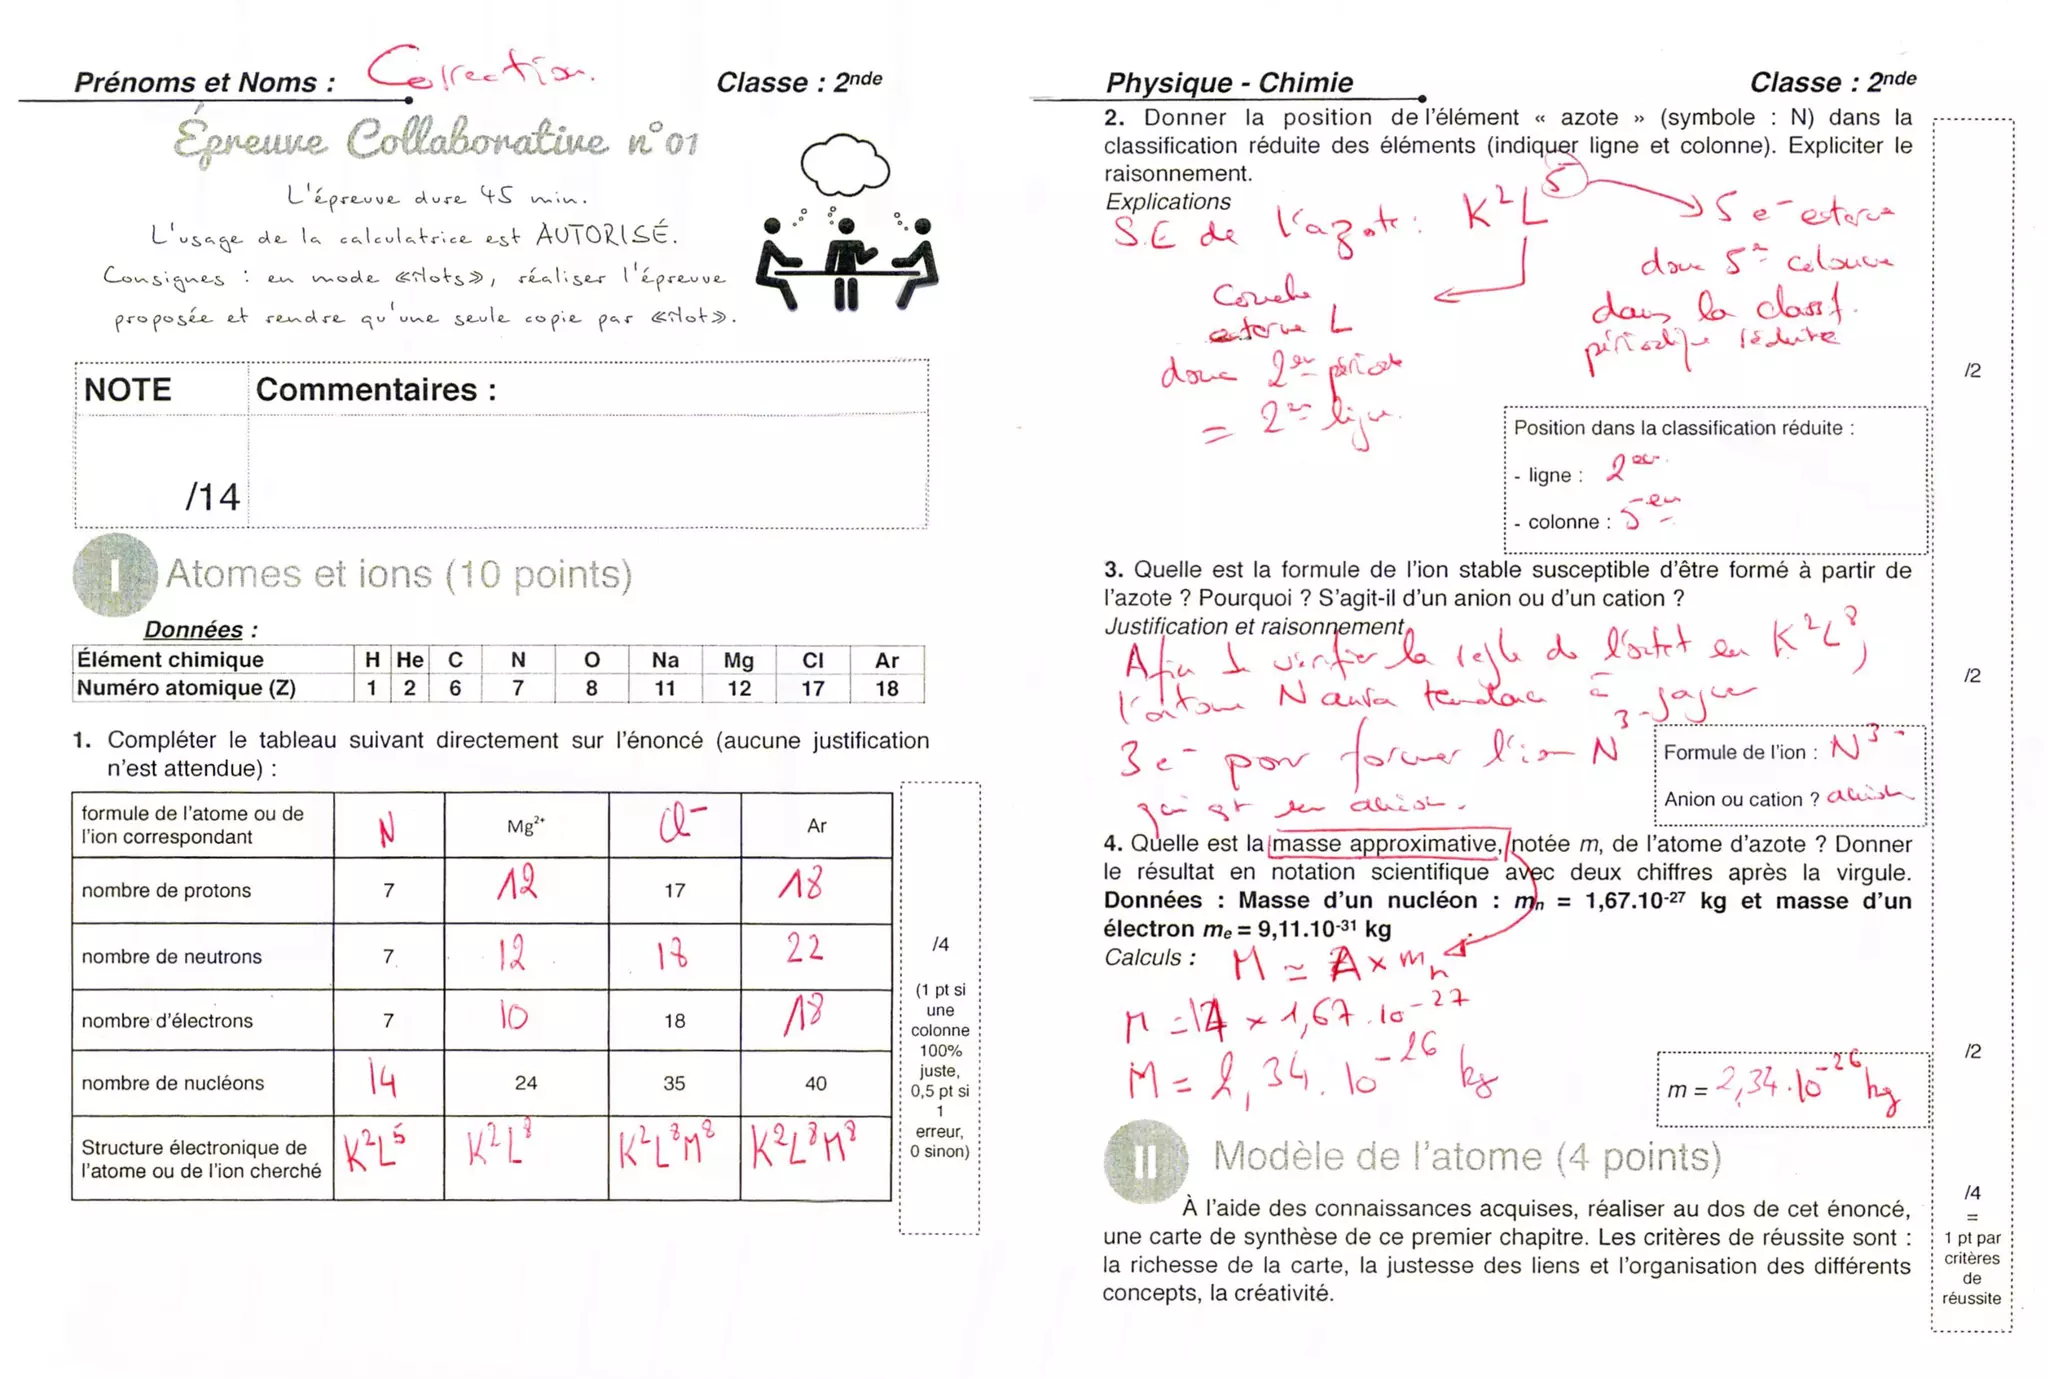 Prénoms et Noms : Correction. Classe : 2nde
Épreuve Collaborative n°01
L'épreuve dure 45 min.
L'usage de la calculatrice est AUTORISÉ.
Consignes : en mode «îlots», réaliser l'épreuve
proposée et rendre qu'une seule copie par «îlot».
NOTE Commentaires :
/14
I Atomes et ions (10 points)
Données :
Élément chimique H He C N O Na Mg Cl Ar
Numéro atomique (Z) 1 2 6 7 8 11 12 17 18
1. Compléter le tableau suivant directement sur l'énoncé (aucune justification
n'est attendue) :
formule de l'atome ou de
l'ion correspondant N Mg²⁺ Cl⁻ Ar
nombre de protons 7 12 17 18
nombre de neutrons 7 12 18 22
nombre d'électrons 7 10 18 18
nombre de nucléons 14 24 35 40
Structure électronique de
l'atome ou de l'ion cherché K²L⁵ K²L⁸ K²L⁸M⁸ K²L⁸M⁸
/4
(1 pt si
une
colonne
100%
juste,
0,5 pt si
1
erreur,
0 sinon)
Physique - Chimie Classe : 2nde
2. Donner la position de l'élément « azote » (symbole : N) dans la
classification réduite des éléments (indiquer ligne et colonne). Expliciter le
raisonnement.
Explications
S.E de l'azote : K²L⁵ 5 e⁻ externe
donc 5e colonne
dans la classif.
périodique réduite
Couche
externe L
donc 2em période
= 2em ligne.
/2
Position dans la classification réduite :
- ligne : 2em.
- colonne : 5em
3. Quelle est la formule de l'ion stable susceptible d'être formé à partir de
l'azote ? Pourquoi ? S'agit-il d'un anion ou d'un cation ?
Justification et raisonnement
Afin de vérifier la règle de l'octet en K²L⁸,
l'atome N aura tendance à gagner
3 e⁻ pour former l'ion N³⁻
qui est un anion.
/2
Formule de l'ion : N³⁻
Anion ou cation ? anion
4. Quelle est la masse approximative, notée m, de l'atome d'azote ? Donner
le résultat en notation scientifique avec deux chiffres après la virgule.
Données : Masse d'un nucléon : mn = 1,67.10⁻²⁷ kg et masse d'un
électron me = 9,11.10⁻³¹ kg
Calculs : M ≃ A × mn
M = 14 × 1,67.10⁻²⁷
M = 2,34.10⁻²⁶ kg
/2
m = 2,34.10⁻²⁶ kg
II Modèle de l'atome (4 points)
À l'aide des connaissances acquises, réaliser au dos de cet énoncé,
une carte de synthèse de ce premier chapitre. Les critères de réussite sont :
la richesse de la carte, la justesse des liens et l'organisation des différents
concepts, la créativité.
/4
=
1 pt par
critères
de
réussite